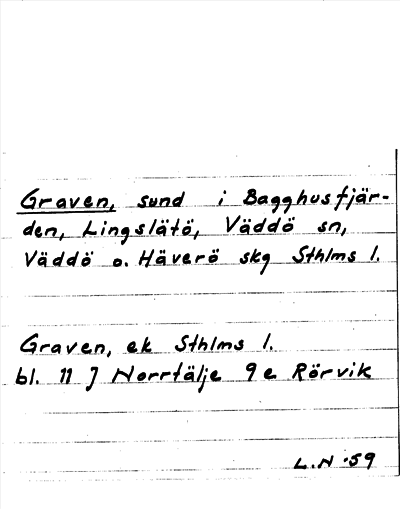 Graven, sund i Bagghusfjär-
den, Lingslätö, Väddö sn,
Väddö o. Häverö skg Sthlms l.
Graven, ek Sthlms l.
bl. 11 J Norrtälje 9e Rörvik
L.N -59